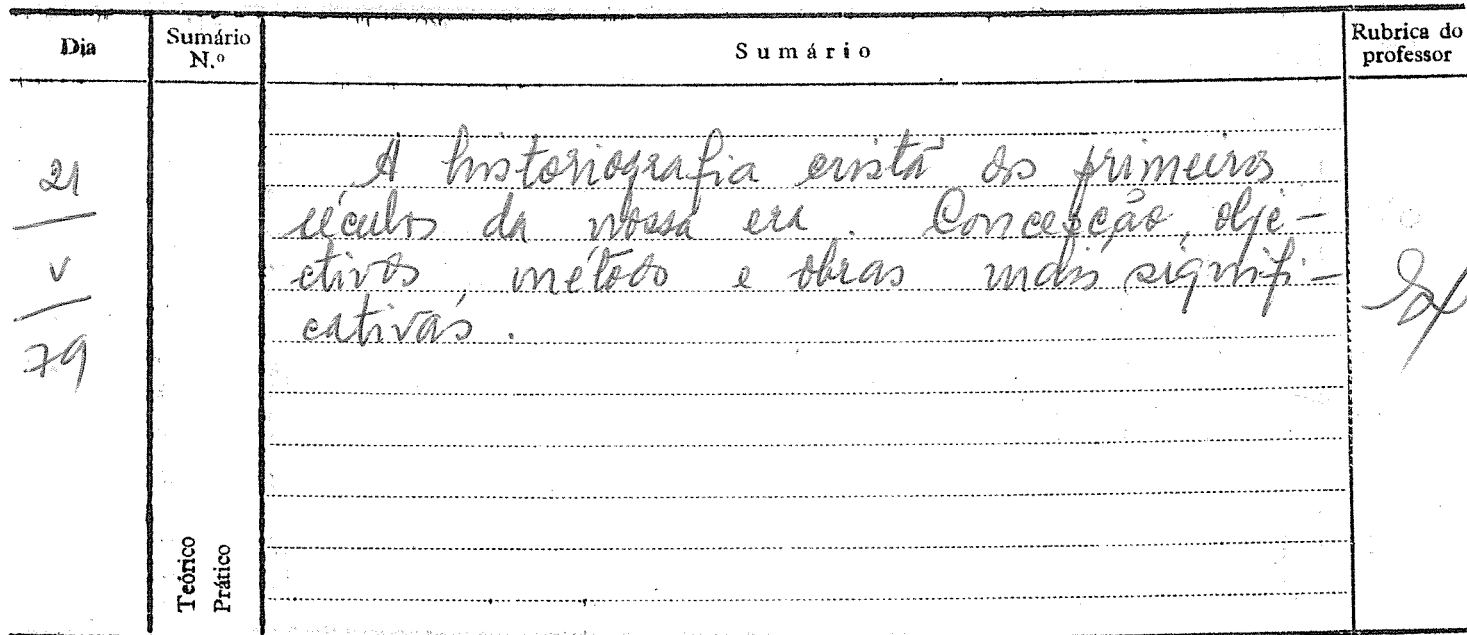 Dia
Sumário N.º
Sumário
Rubrica do professor
21
V
79
A historiografia cristã dos primeiros
séculos da nossa era. Concepção, obje-
ctivos, método e obras mais signifi-
cativas.
Teórico
Prático